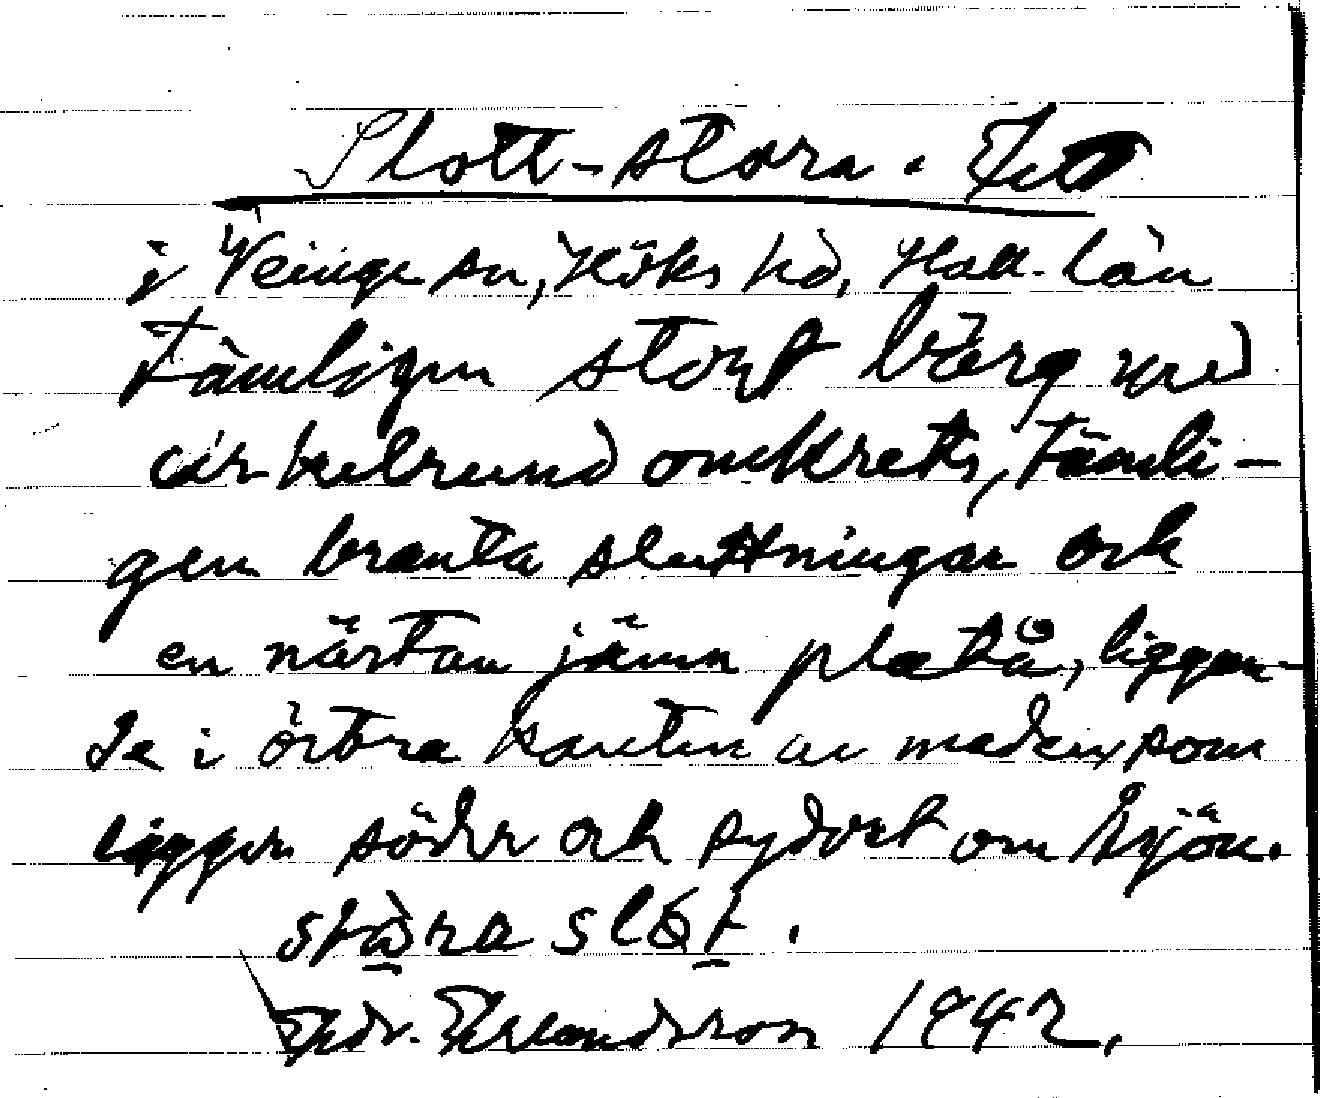 Slott-stora.
i Veinge sn, Höks hd, Hall. län
Tämligen stort bärg med
cirkelrund omkrets, tämli-
gen branta sluttningar och
en nästan jämn platå, liggan-
de i östra kanten av maden som
ligger söder och sydväst om Åsjön.
stòra slòt.
Erlandsson 1942.